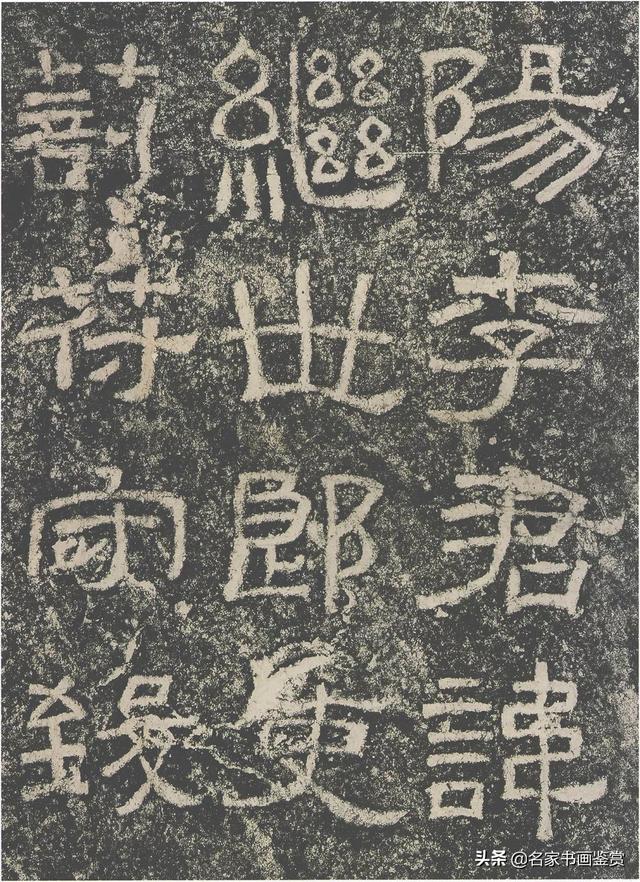 陽李君諱
繼世郎吏
剖符守致
头条 @名家书画鉴赏